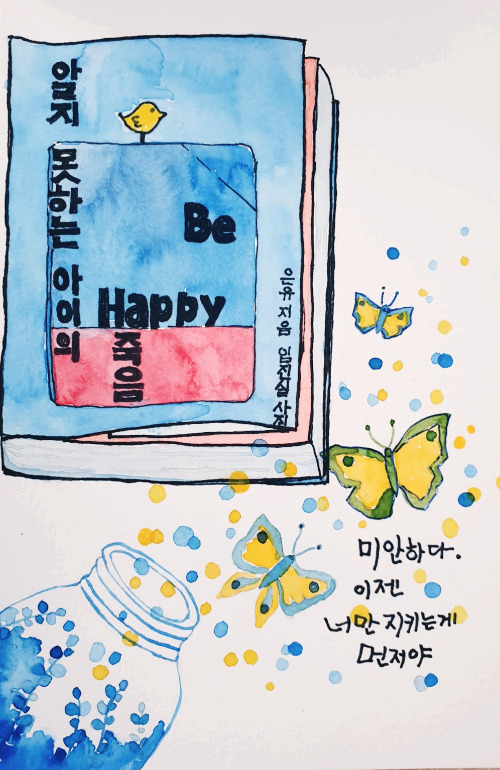 알지 못하는 아이의
죽음
Be
Happy
은유 지음 임진실 사진
미안하다.
이젠
너만 지키는게
먼저야